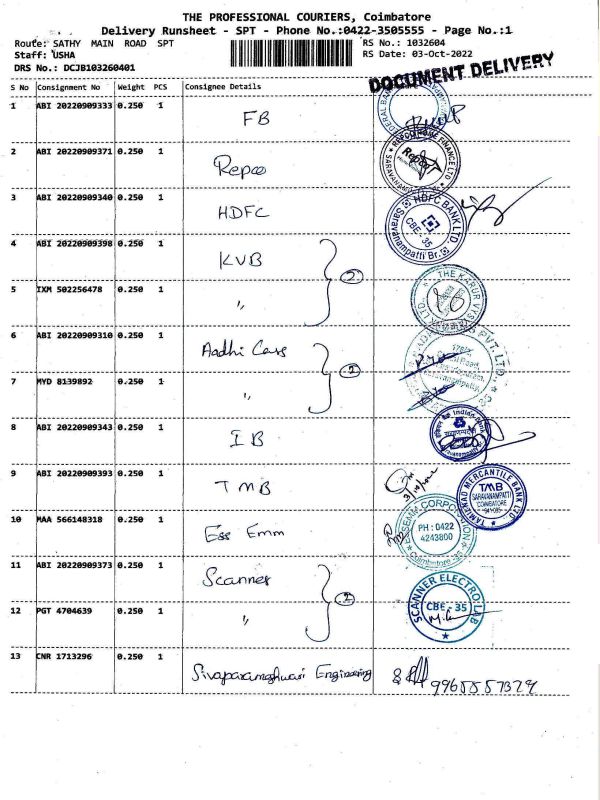 THE PROFESSIONAL COURIERS, Coimbatore
Delivery Runsheet - SPT - Phone No.:0422-3505555 - Page No.:1
Route: SATHY MAIN ROAD SPT
RS No.: 1032604
Staff: USHA
RS Date: 03-Oct-2022
DRS No.: DCJB103260401
DOCUMENT DELIVERY
S No Consignment No Weight PCS Consignee Details
1 ABI 20220909333 0.250 1 FB
2 ABI 20220909371 0.250 1 Repco
REPCO HOME FINANCE LTD
3 ABI 20220909340 0.250 1 HDFC
HDFC BANK LTD
CBE - 35
Saravanampatti Br.
4 ABI 20220909398 0.250 1 KVB
2
5 IXM 502256478 0.250 1 "
THE KARUR VYSYA
6 ABI 20220909310 0.250 1 Aadhi Cars
2
PVT. LTD.
7 MYD 8139892 0.250 1 "
8 ABI 20220909343 0.250 1 IB
Indian Bank
9 ABI 20220909393 0.250 1 TMB
3/10/2022
TAMILNAD MERCANTILE BANK LTD
TMB
SARAVANAMPATTI
COIMBATORE
641 035
10 MAA 566148318 0.250 1 Ess Emm
ESSEMM CORPORATION
PH : 0422
4243800
Coimbatore -35
11 ABI 20220909373 0.250 1 Scanner
2
12 PGT 4704639 0.250 1 "
SCANNER ELECTRO LAB
CBE - 35
13 CNR 1713296 0.250 1 Sivaparameshwari Engineering